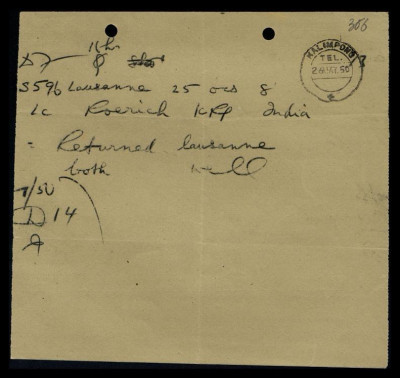 306
KALIMPONG
TEL.
26 MAY. 50
S596 Lausanne 25 ocd 8
Lc Roerich KPG India
= Returned lausanne
both well
D 14